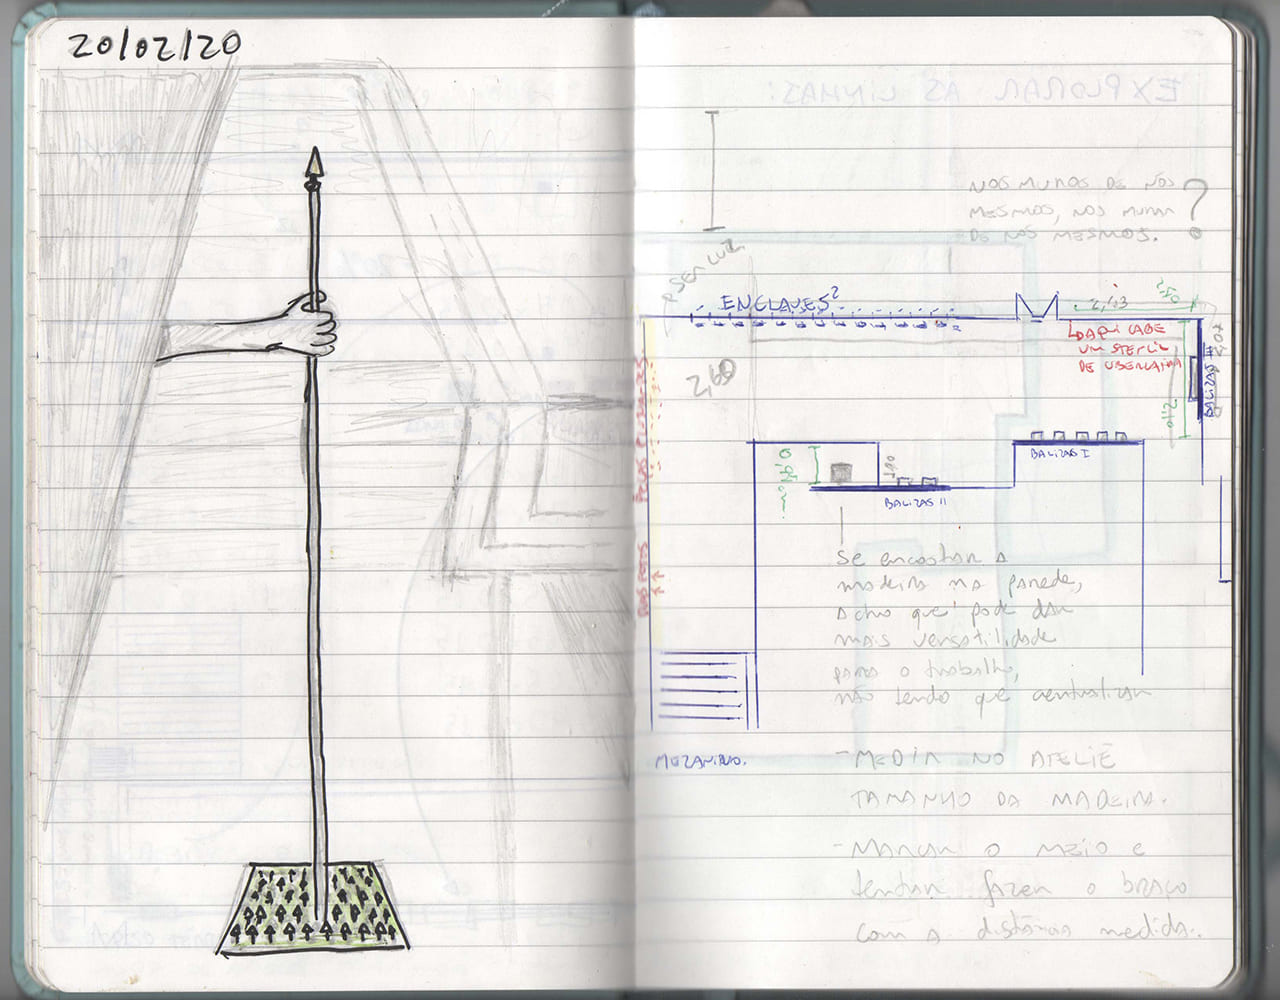 20/02/20
EXPLORAR AS LINHAS:
NOS MUROS DE NÓS
MESMOS, NOS MURAR
DE NÓS MESMOS. ?
P SER LUZ
ENCLAVES²
2,13
DAQUI CABE
UM STENCIL
DE UBERLÂNDIA
2,60
2,10
BALIZAS I
BALIZAS II
se encostar a
madeira na parede,
acho que pode dar
mais versatilidade
para o trabalho,
não tendo que centralizar
MEZANINO.
- MEDIR NO ATELIÊ
TAMANHO DA MADEIRA.
- MARCAR O MEIO e
tentar fazer o braço
com a distância medida.